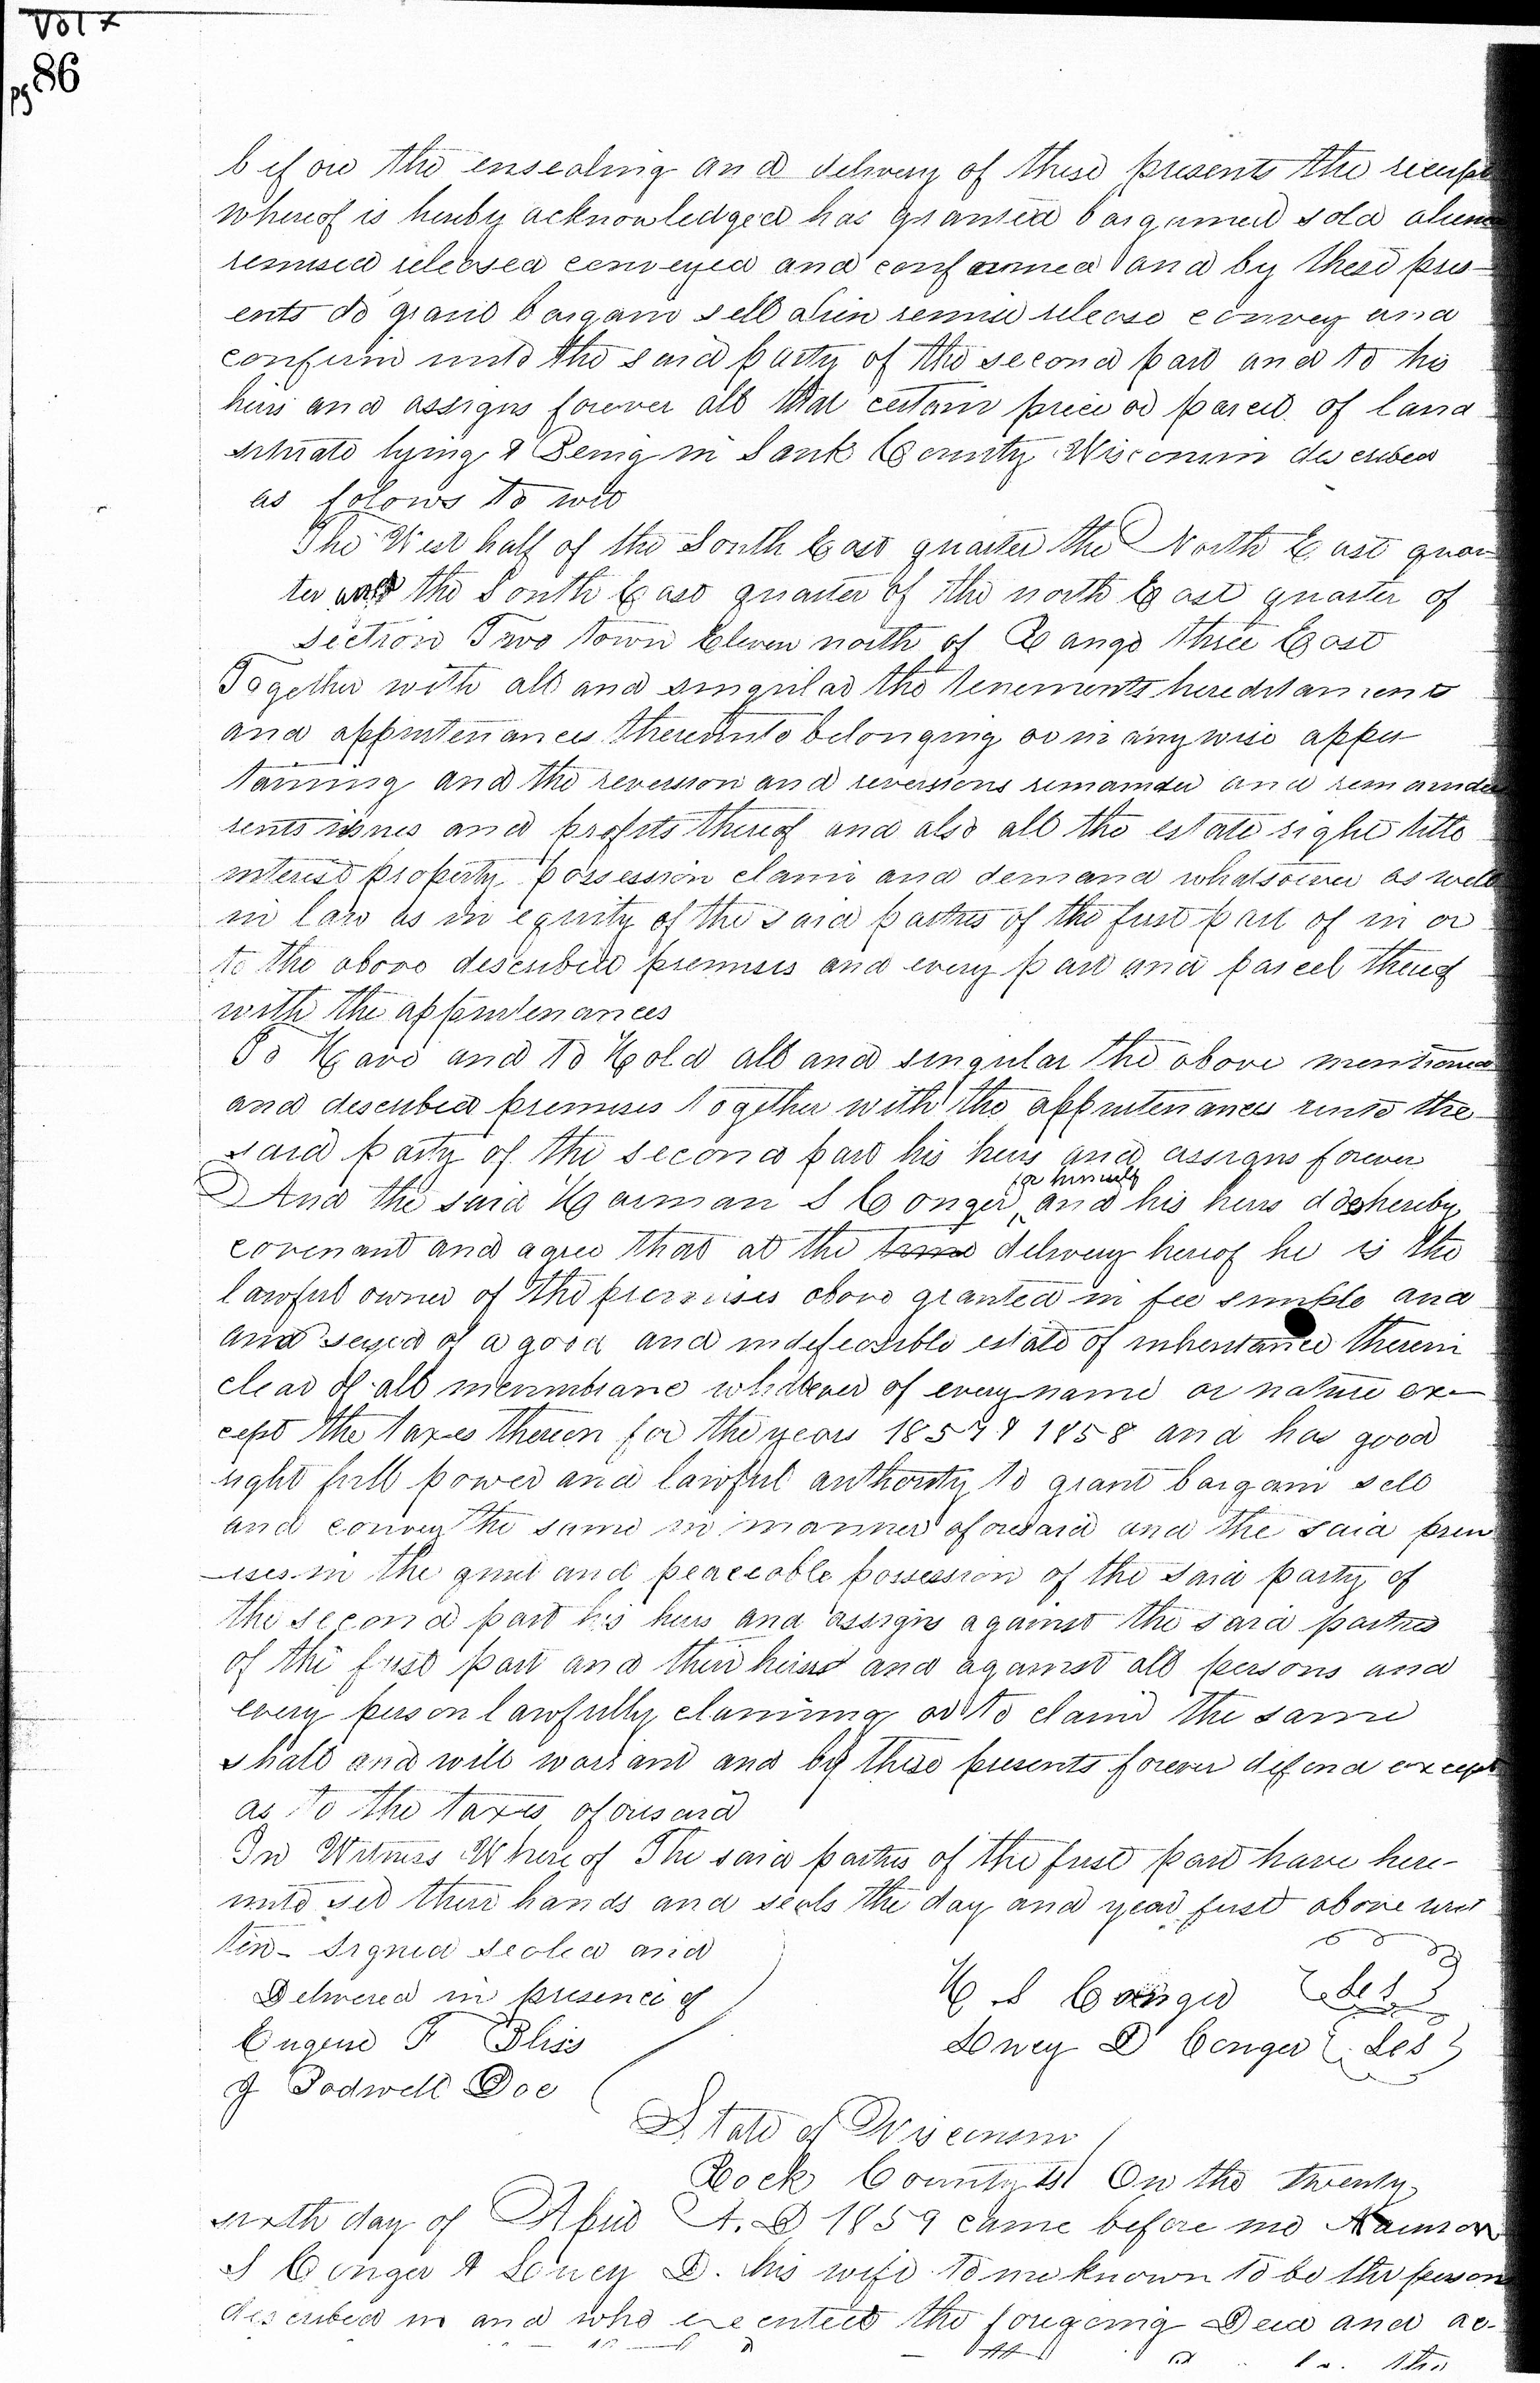 Vol X
pg 86
before the ensealing and delivery of these presents the receipt
whereof is hereby acknowledged has granted bargained sold alien
remised released conveyed and confirmed and by these pres-
ents do grant bargain sell alien remise release convey and
confirm unto the said party of the second part and to his
heirs and assigns forever all that certain piece or parcel of land
situate lying & Being in Sauk County Wisconsin described
as folows to wit
The West half of the South East quarter the North East quar
ter and the South East quarter of the north East quarter of
section Two town Eleven north of Range three East
Together with all and singular the tenements hereditaments
and appurtenances thereunto belonging or in any wise apper
taining and the reversion and reversions remainder and remainder
rents issues and profits thereof and also all the estate right title
interest property possession claim and demand whatsoever as well
in law as in equity of the said parties of the first part of in or
to the above described premises and every part and parcel thereof
with the appurtenances
To Have and to Hold all and singular the above mentioned
and described premises together with the appurtenances unto the
said party of the second part his heirs and assigns forever
for himself
And the said Harman S Conger and his heirs does hereby
covenant and agree that at the time delivery hereof he is the
lawful owner of the premises above granted in fee simple and
and seized of a good and indefeasible estate of inheritance therein
clear of all incumbrance whatever of every name or nature ex-
cept the taxes thereon for the years 1857 & 1858 and has good
right full power and lawful authority to grant bargain sell
and convey the same in manner aforesaid and the said prem
-ises in the quiet and peaceable possession of the said party of
the second part his heirs and assigns against the said parties
of the first part and their heirs and against all persons and
every person lawfully claiming or to claim the same
shall and will warrant and by these presents forever defend except
as to the taxes aforesaid
In Witness Whereof The said parties of the first part have here-
unto set their hands and seals the day and year first above writ
ten- Signed sealed and
Delivered in presence of
H S Conger {LS}
Eugene F Bliss
Lucy D Conger {LS}
J Bodwell Doe
State of Wisconsin
Rock County ss On the twenty
sixth day of April A.D 1859 came before me Harman
S Conger & Lucy D. his wife to me known to be the person
described in and who executed the foregoing Deed and ac-